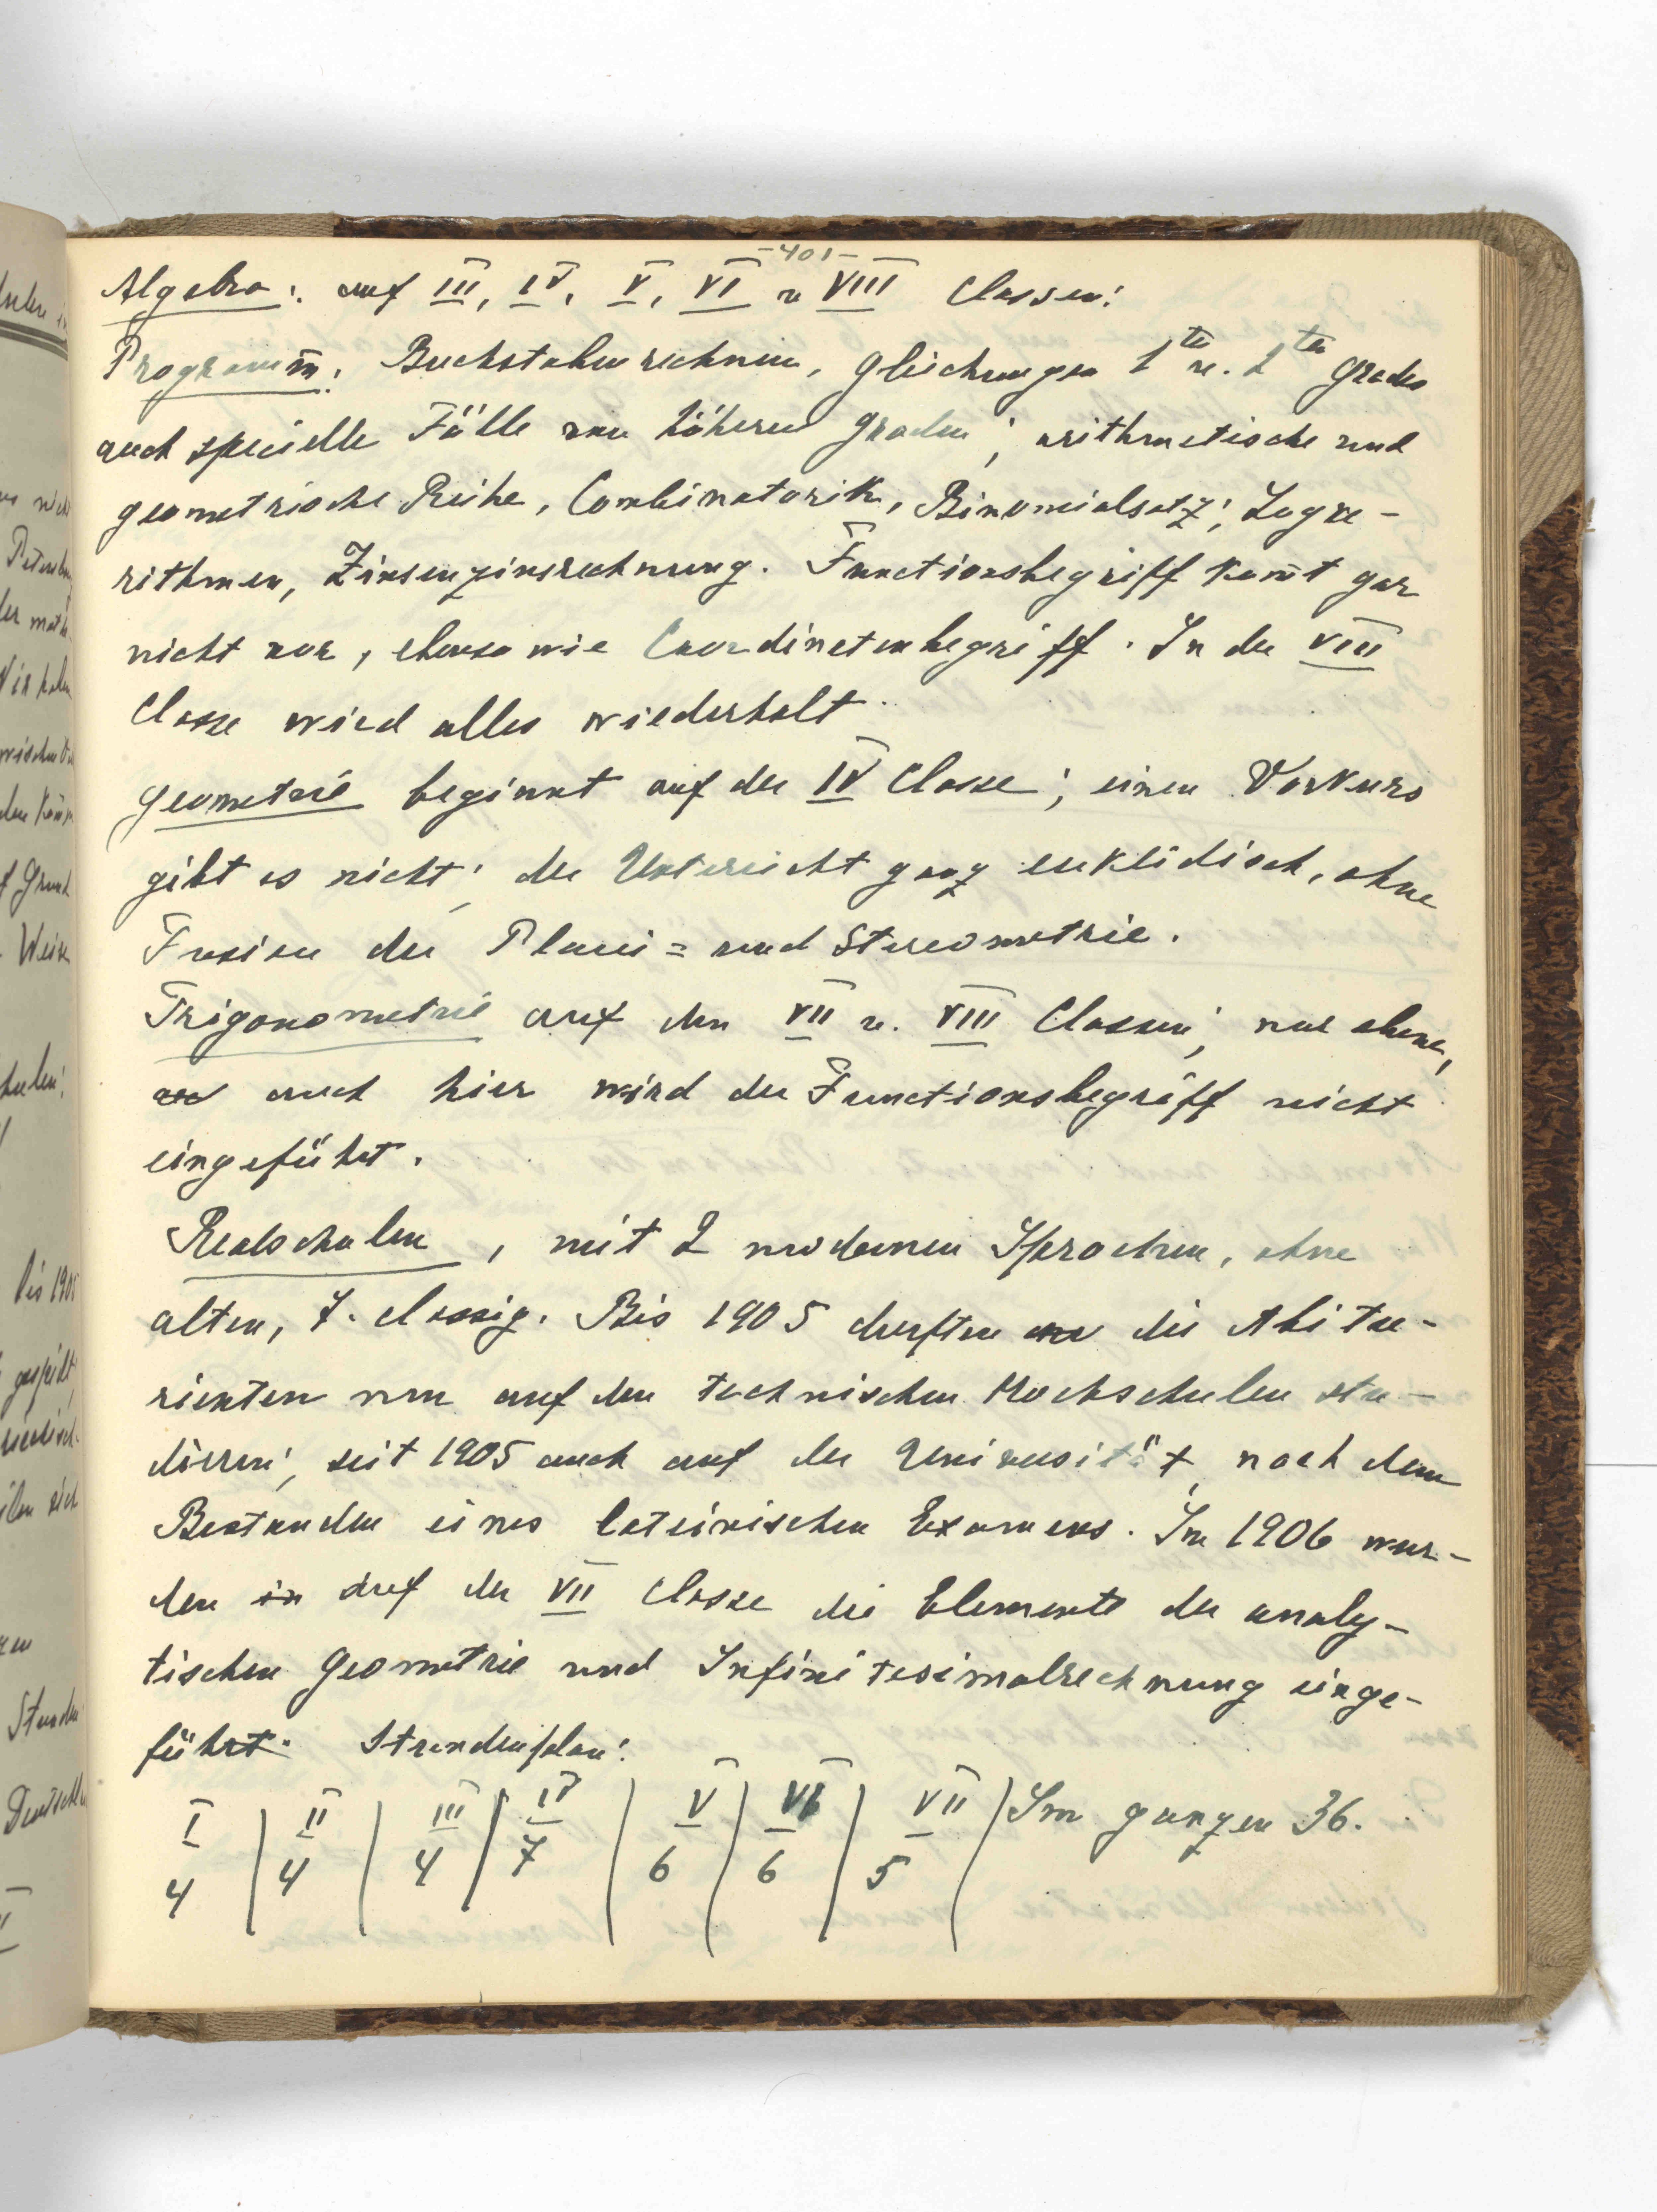 -401-
Algebra: auf III, IV, V, VI u VIII Classen:
Program̄: Buchstabenrechnen, Gleichungen 1ten u. 2ten Grades
auch specielle Fälle von höheren Graden; arithmetische und
geometrische Reihe, Combinatorik, Binomialsatz; Loga-
rithmen, Zinsenzinsrechnung. Functionsbegriff kom̄t gar
nicht vor, ebenso wie Coordinatenbegriff. In der VIII
Classe wird alles wiederholt.
Geometrie beginnt auf der IV Classe; einen Vorkurs
gibt es nicht; der Unterricht ganz euklidisch, ohne
Fusion der Plani= und Stereometrie.
Trigonometrie auf den VII u. VIII Classen; nur ebene,
auch hier wird der Functionsbegriff nicht
eingeführt.
Realschulen, mit 2 modernen Sprachen, ohne
alten, 7. classig. Bis 1905 durften die Abitu-
rienten nur auf den technischen Hochschulen stu-
dieren; seit 1905 auch auf der Universität, nach dem
Bestanden eines lateinischen Examens. Im 1906 wur-
den in auf der VII Classe die Elemente der analy-
tischen Geometrie und Infinitesimalrechnung einge-
führt. Stundenplan:
I | II | III | IV | V | VI | VII | Im ganzen 36.
4 | 4 | 4 | 7 | 6 | 6 | 5